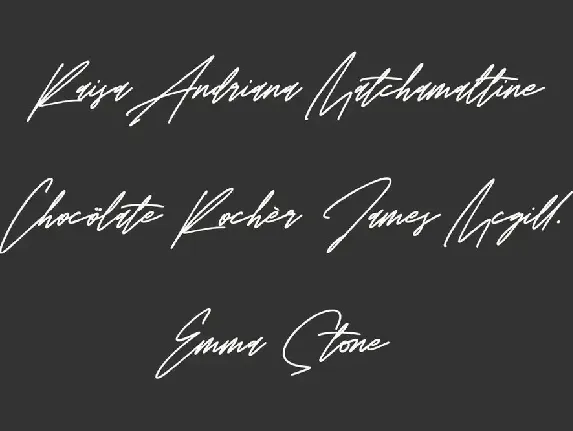 Raisa Andriana Matchamattine
Chocölate Rochèr James Mcgill.
Emma Stone